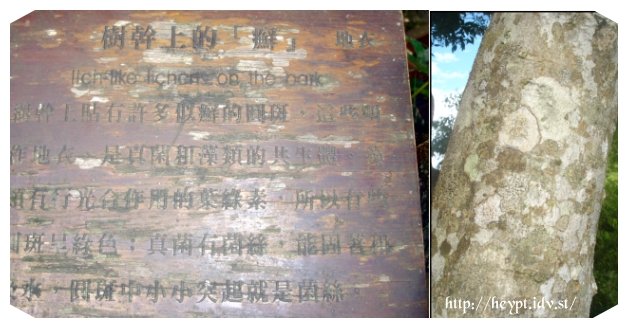 樹幹上的「癬」 地衣
Itch-like lichens on the bark
樹幹上貼有許多似癬的圓斑,這些
作地衣,是真菌和藻類的共生
有行光合作用的葉綠素,所以有
圓斑呈綠色;真菌有菌絲,能固著
水,圓斑中小小突起就是菌絲。
http://heypt.idv.st/